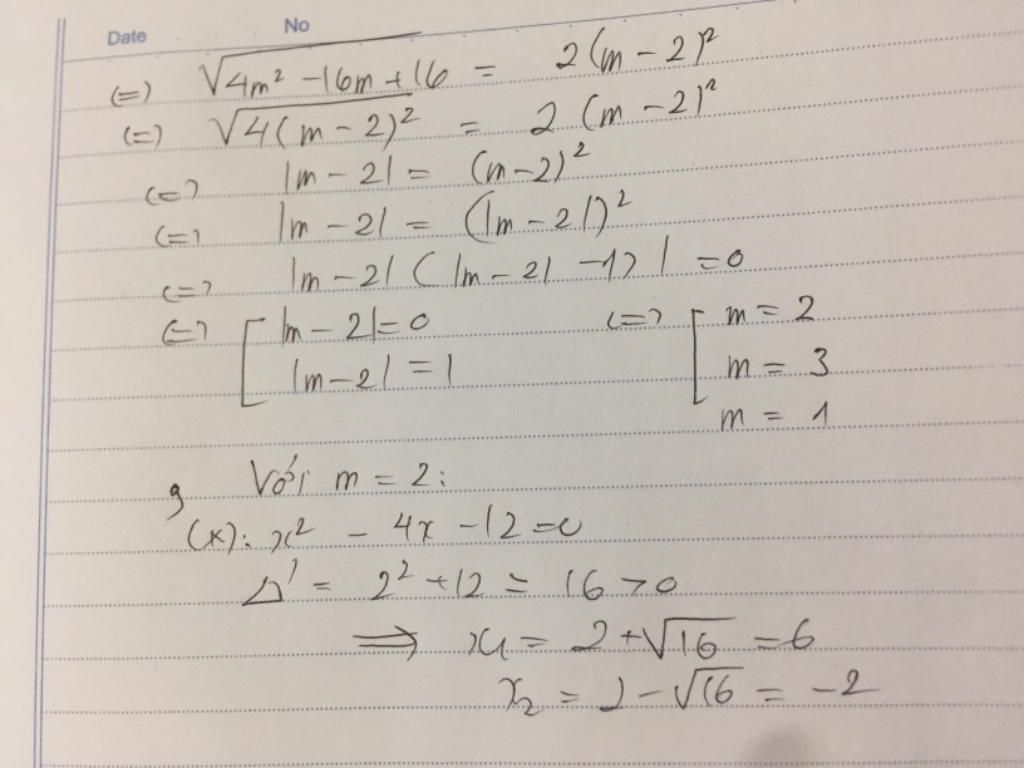 Date No
(=) √4m² - 16m + 16 = 2(m - 2)²
(=) √4(m - 2)² = 2(m - 2)²
(=) |m - 2| = (m - 2)²
(=) |m - 2| = (|m - 2|)²
(=) |m - 2| (|m - 2| - 1)| = 0
(=) [ |m - 2| = 0 (=) [ m = 2
|m - 2| = 1 m = 3
m = 1
g Với m = 2:
(x): x² - 4x - 12 = 0
Δ' = 2² + 12 = 16 > 0
⇒ x₁ = 2 + √16 = 6
x₂ = 2 - √16 = -2